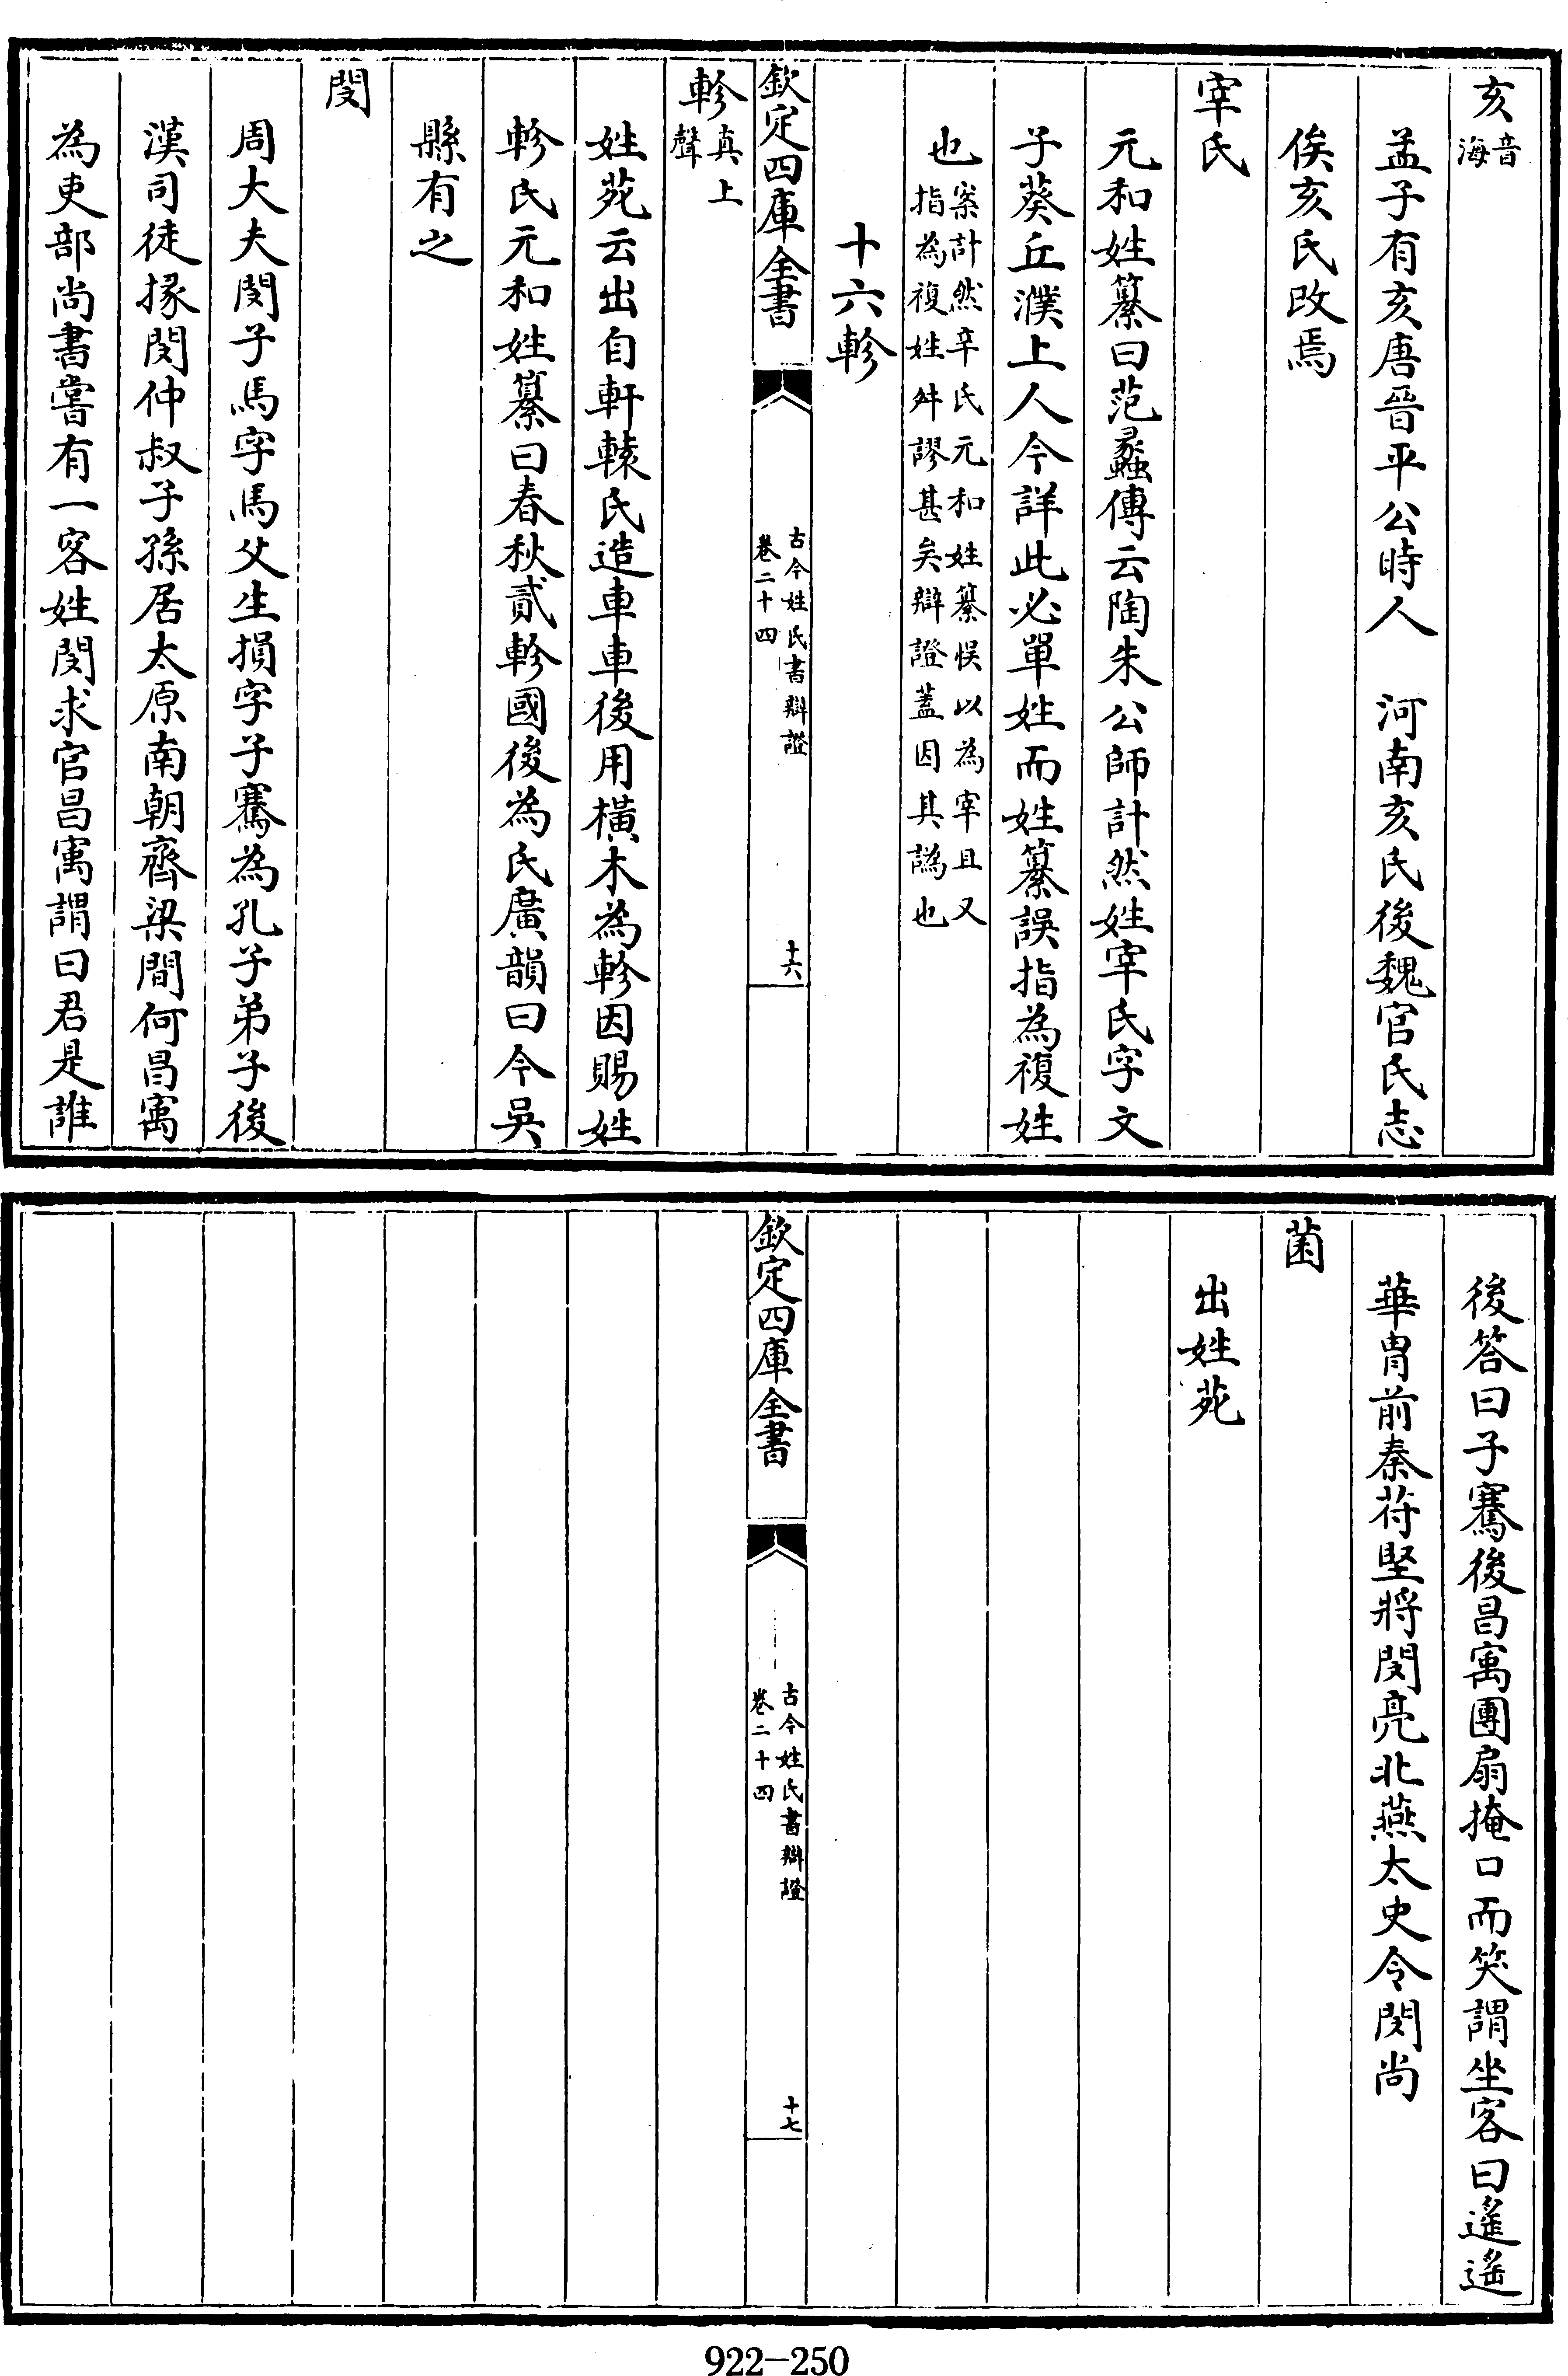 亥音海
孟子有亥唐晉平公時人　河南亥氏後魏官氏志
俟亥氏改焉
宰氏
元和姓纂曰范蠡傳云陶朱公師計然姓宰氏字文
子葵丘濮上人今詳此必單姓而姓纂誤指為複姓
也案計然辛氏元和姓纂悮以為宰且又指為複姓舛謬甚矣辯證蓋因其譌也
十六軫
欽定四庫全書
古今姓氏書辯證
卷二十四
十六
軫真上聲
姓苑云出自軒轅氏造車車後用橫木為軫因賜姓
軫氏元和姓纂曰春秋貳軫國後為氏廣韻曰今吳
縣有之
閔
周大夫閔子馬字馬父生損字子騫為孔子弟子後
漢司徒掾閔仲叔子孫居太原南朝齊梁間何昌㝢
為吏部尚書嘗有一客姓閔求官昌寓謂曰君是誰
後答曰子騫後昌寓團扇掩口而笑謂坐客曰遥遥
華胄前秦苻堅將閔亮北燕太史令閔尚
菌
出姓苑
欽定四庫全書
古今姓氏書辯證
卷二十四
十七
922-250